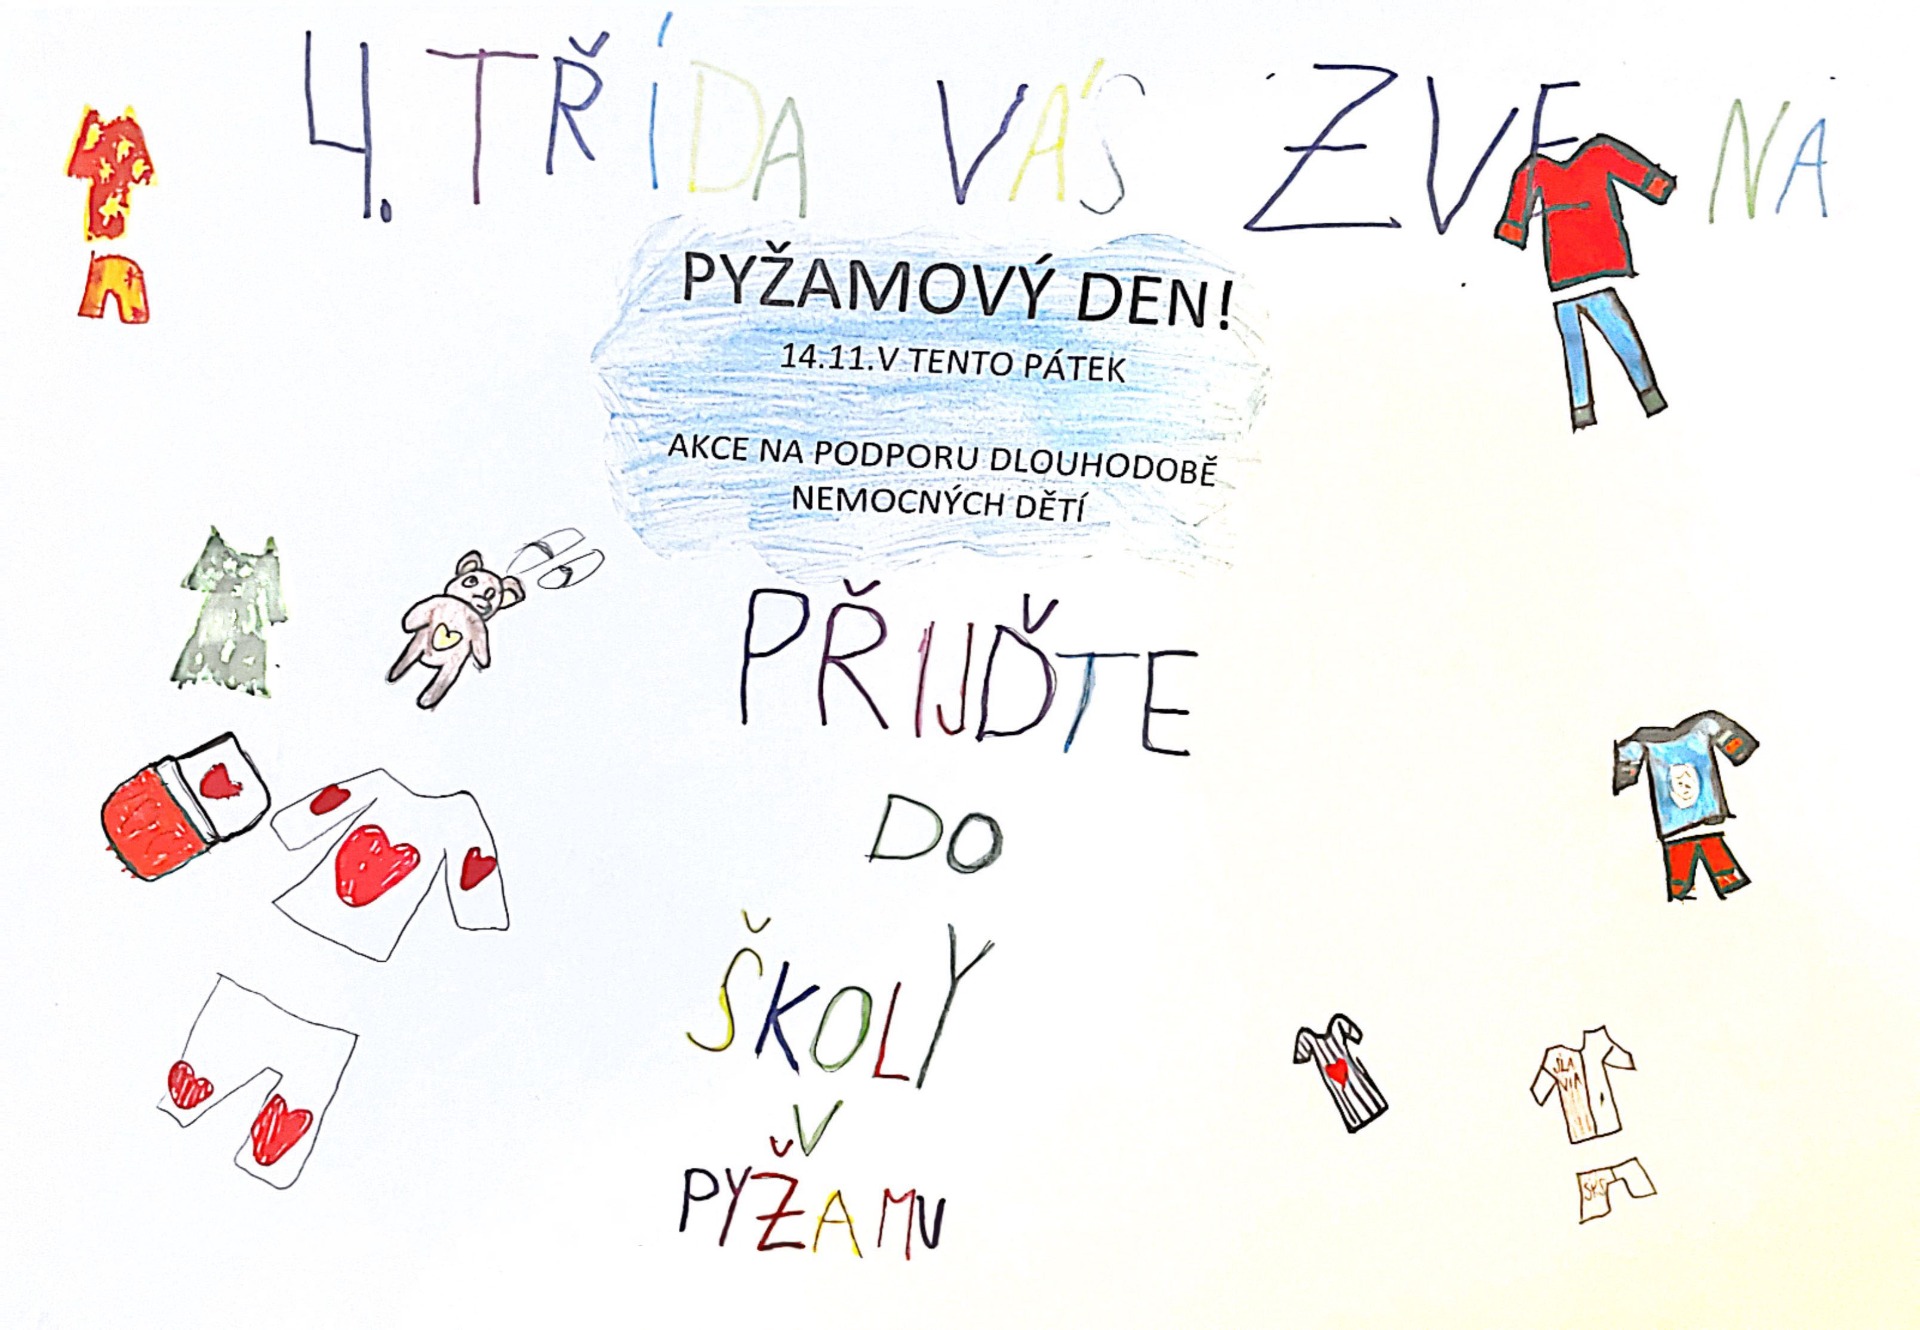 4. TŘÍDA VÁS ZVE NA
PYŽAMOVÝ DEN!
14.11.V TENTO PÁTEK
AKCE NA PODPORU DLOUHODOBĚ
NEMOCNÝCH DĚTÍ
PŘIJĎTE
DO
ŠKOLY
V
PYŽAMU
SLA
VIA